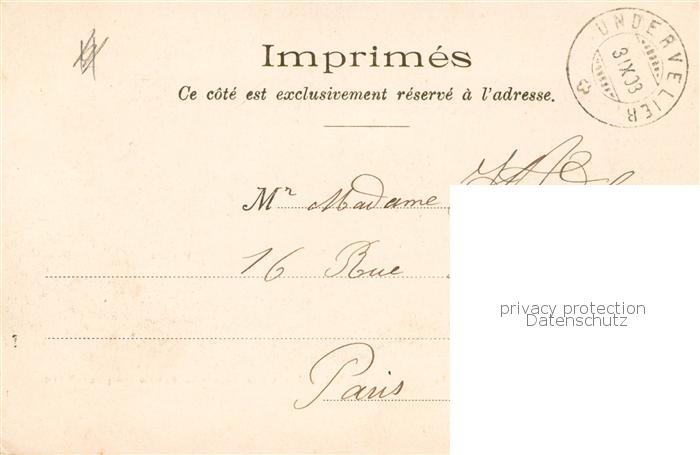 Imprimés
Ce côté est exclusivement réservé à l'adresse.
UNDERVELIER
3 IX 03
Mr Madame
16 Rue
Paris
privacy protection
Datenschutz